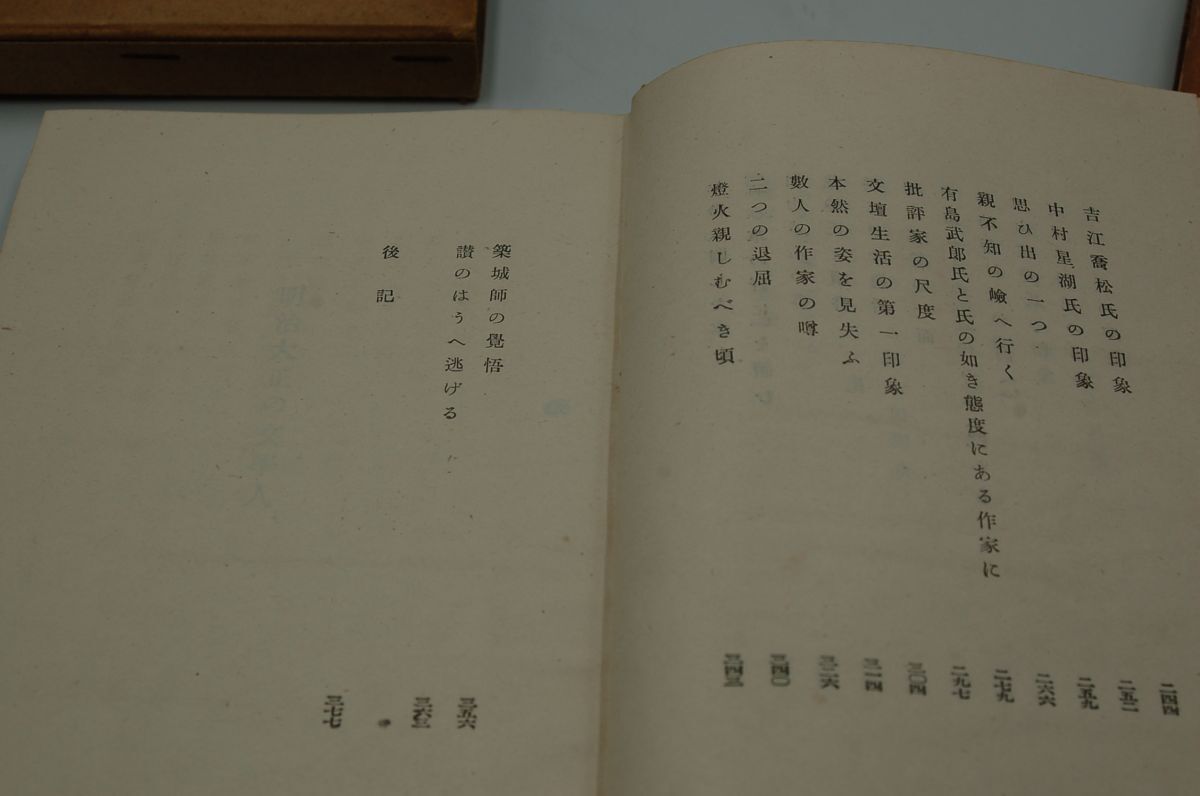 吉江喬松氏の印象 二四四
中村星湖氏の印象 二五二
思ひ出の一つ 二五九
親不知の嶮へ行く 二六六
有島武郎氏と氏の如き態度にある作家に 二七九
批評家の尺度 二九七
文壇生活の第一印象 三〇四
本然の姿を見失ふ 三一四
數人の作家の噂 三二六
二つの退屈 三四〇
燈火親しむべき頃 三四三
築城師の覺悟 三五六
讃のはうへ逃げる 三六三
後記 三七七